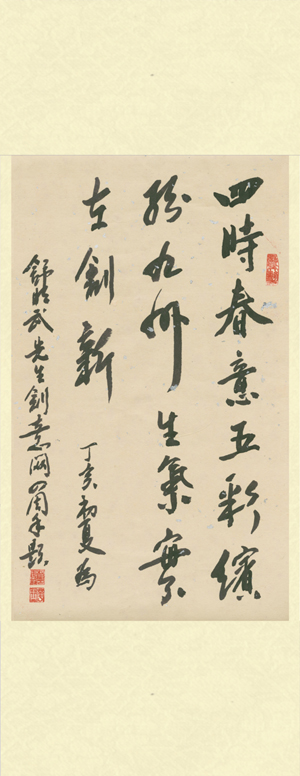 四時春意五彩繽
紛九州生氣
在創新
丁亥初夏爲
舒武先生創意網四周年題